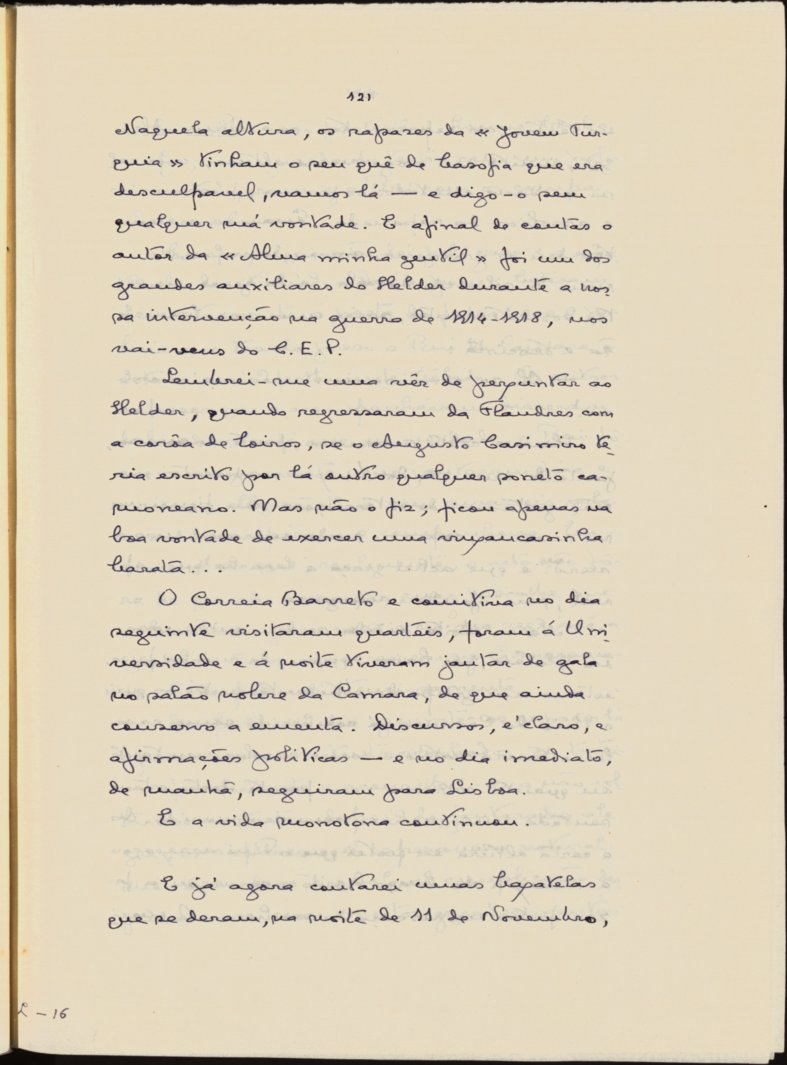 121
Naquela altura, os rapases da « Jovem Tur-
quia » tinham o seu quê de basofia que era
desculpavel, vamos lá — e digo-o sem
qualquer má vontade. E afinal de contas o
autor da « Alma minha gentil » foi um dos
grandes auxiliares do Helder durante a nos-
sa intervenção na guerra de 1914-1918, nos
vai-vens do C. E. P.
Lembrei-me uma vês de perguntar ao
Helder, quando regressaram da Flandres com
a corôa de loiros, se o Augusto Casimiro te-
ria escrito por lá outro qualquer soneto ca-
moneano. Mas não o fiz; ficou apenas na
boa vontade de exercer uma vingancasinha
barata...
O Correia Barreto e comitiva no dia
seguinte visitaram quarteis, foram á Uni-
versidade e á noite tiveram jantar de gala
no salão nobre da Camara, de que ainda
conservo a ementa. Discursos, é claro, e
afirmações politicas — e no dia imediato,
de manhã, seguiram para Lisboa.
E a vida monotona continuou.
E já agora contarei umas bagatelas
que se deram, na noite de 11 de Novembro,
L - 16